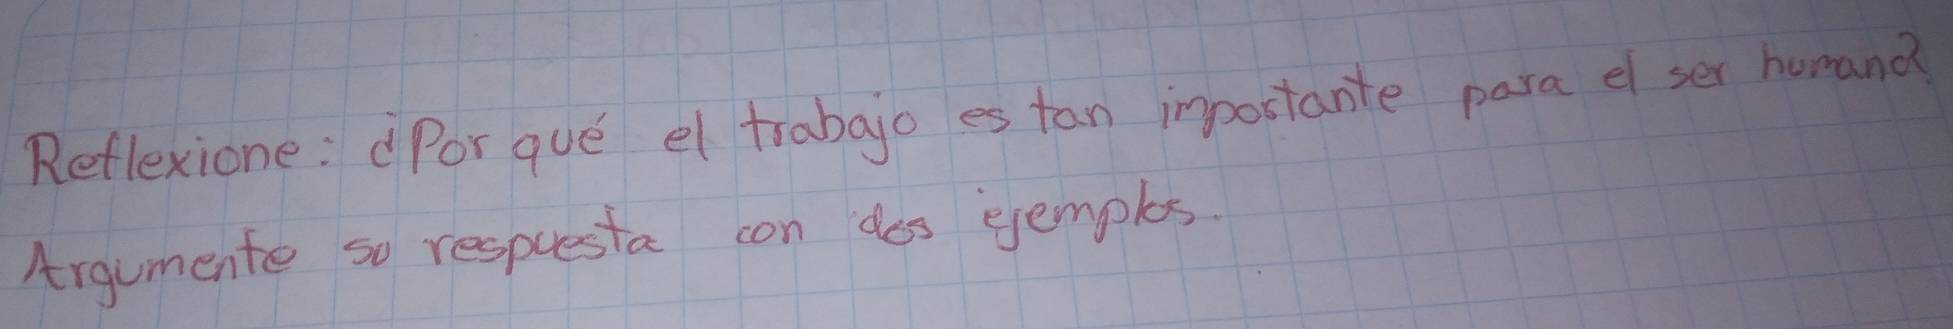 Reflexione: ¿Por qué el trabajo es tan importante para el ser humano?
Argumente su respuesta con dos ejemplos.